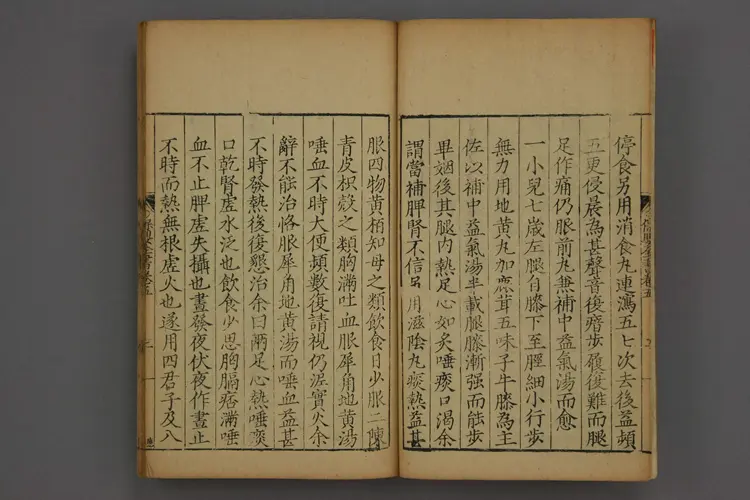 停食另用消食丸連瀉五七次去後益頻
五更侵晨為甚聲音復瘖步履復難而腿
足作痛仍服前丸兼補中益氣湯而愈
一小兒七歲左腿自膝下至脛細小行步
無力用地黃丸加鹿茸五味子牛膝為主
佐以補中益氣湯半載腿膝漸强而能步
畢姻後其腿内熱足心如炙唾痰口渴余
謂當補脾腎不信另用滋陰丸痰熱益甚
服四物黃柏知母之類飲食日少服二陳
青皮枳殼之類胸滿吐血服犀角地黃湯
唾血不時大便頻數復請視仍泥實火余
辭不能治恪服犀角地黃湯而唾血益甚
不時發熱後復懇治余曰兩足心熱唾痰
口乾腎虛水泛也飲食少思胸膈痞滿唾
血不止脾虛失攝也晝發夜伏夜作晝止
不時而熱無根虛火也遂用四君子及八